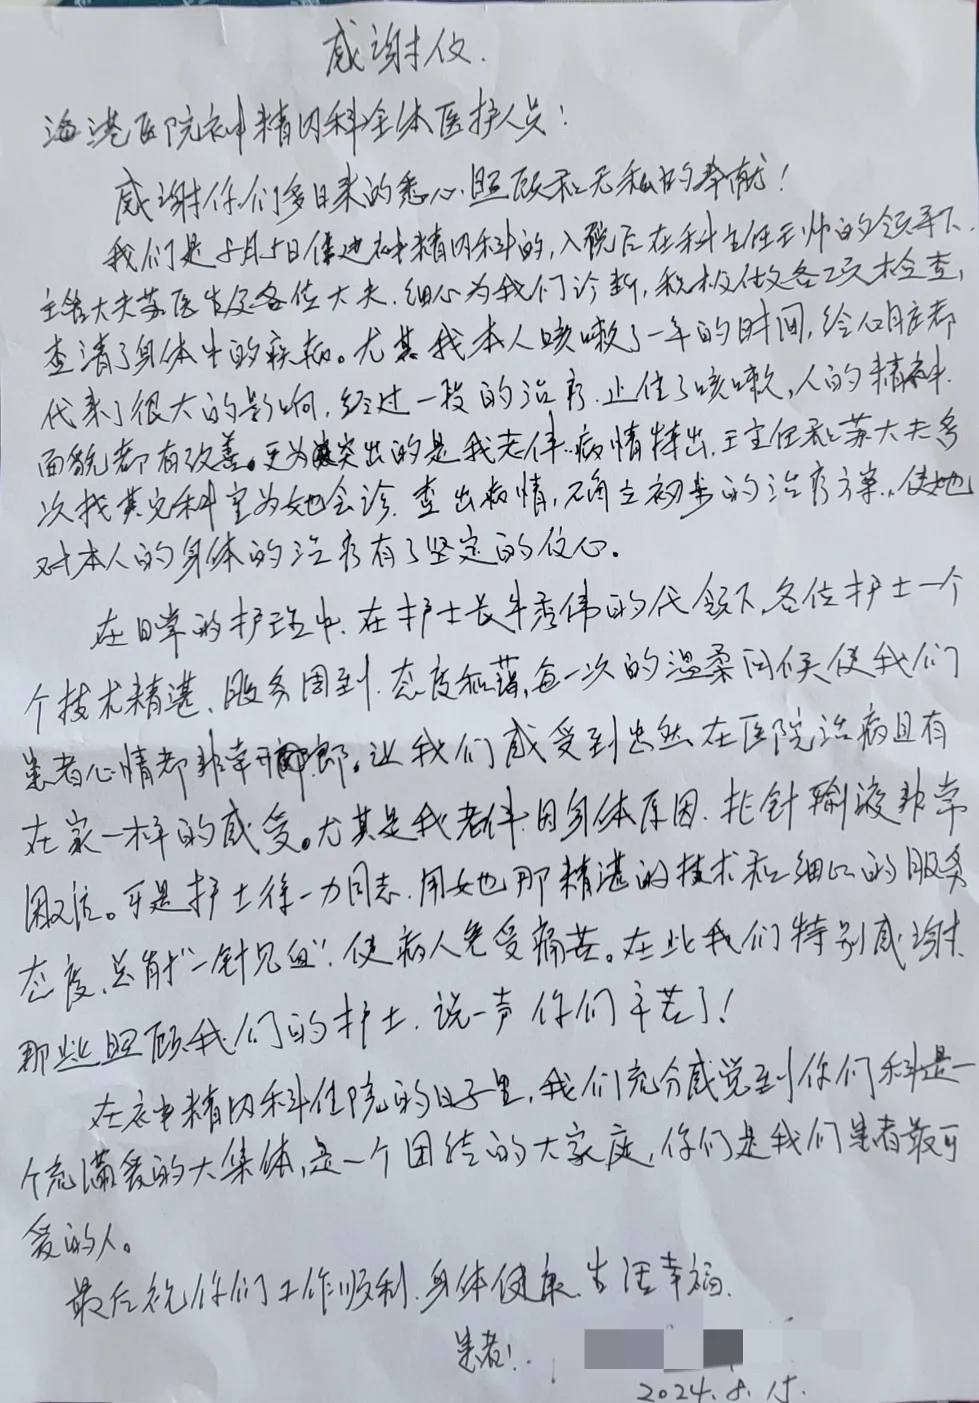 感谢信.
海港医院神精内科全体医护人员！
感谢你们多日来的悉心照顾和无私的奉献！
我们是8月5日住进神精内科的,入院后在科主任王帅的领导下,
主管大夫苏医生及各位大夫.细心为我们诊断,积极做各项检查,
查清了身体中的疾病。尤其我本人咳嗽了一年的时间,给心脏都
代来了很大的影响,经过一段的治疗.止住了咳嗽,人的精神
面貌都有改善。更为突出的是我老伴.病情特出.王主任和苏大夫多
次找其它科室为她会诊.查出病情,确立初步的治疗方案,使她
对本人的身体的治疗有了坚定的信心。
在日常的护理中.在护士长牛秀伟的代领下.各位护士一个
个技术精湛、服务周到.态度和蔼,每一次的温柔问候使我们
患者心情都非常开朗。让我们感受到虽然在医院治病且有
在家一样的感受。尤其是我老伴.因身体原因.扎针输液非常
困难。可是护士徐一力同志.用她那精湛的技术和细心的服务
态度、总能"一针见血".使病人免受痛苦。在此我们特别感谢
那些照顾我们的护士.说一声你们辛苦了！
在神精内科住院的日子里,我们充分感觉到你们科是一
个充满爱的大集体,是一个团结的大家庭,你们是我们患者最可
爱的人。
最后祝你们工作顺利.身体健康.生活幸福.
患者！.
2024.8.15.